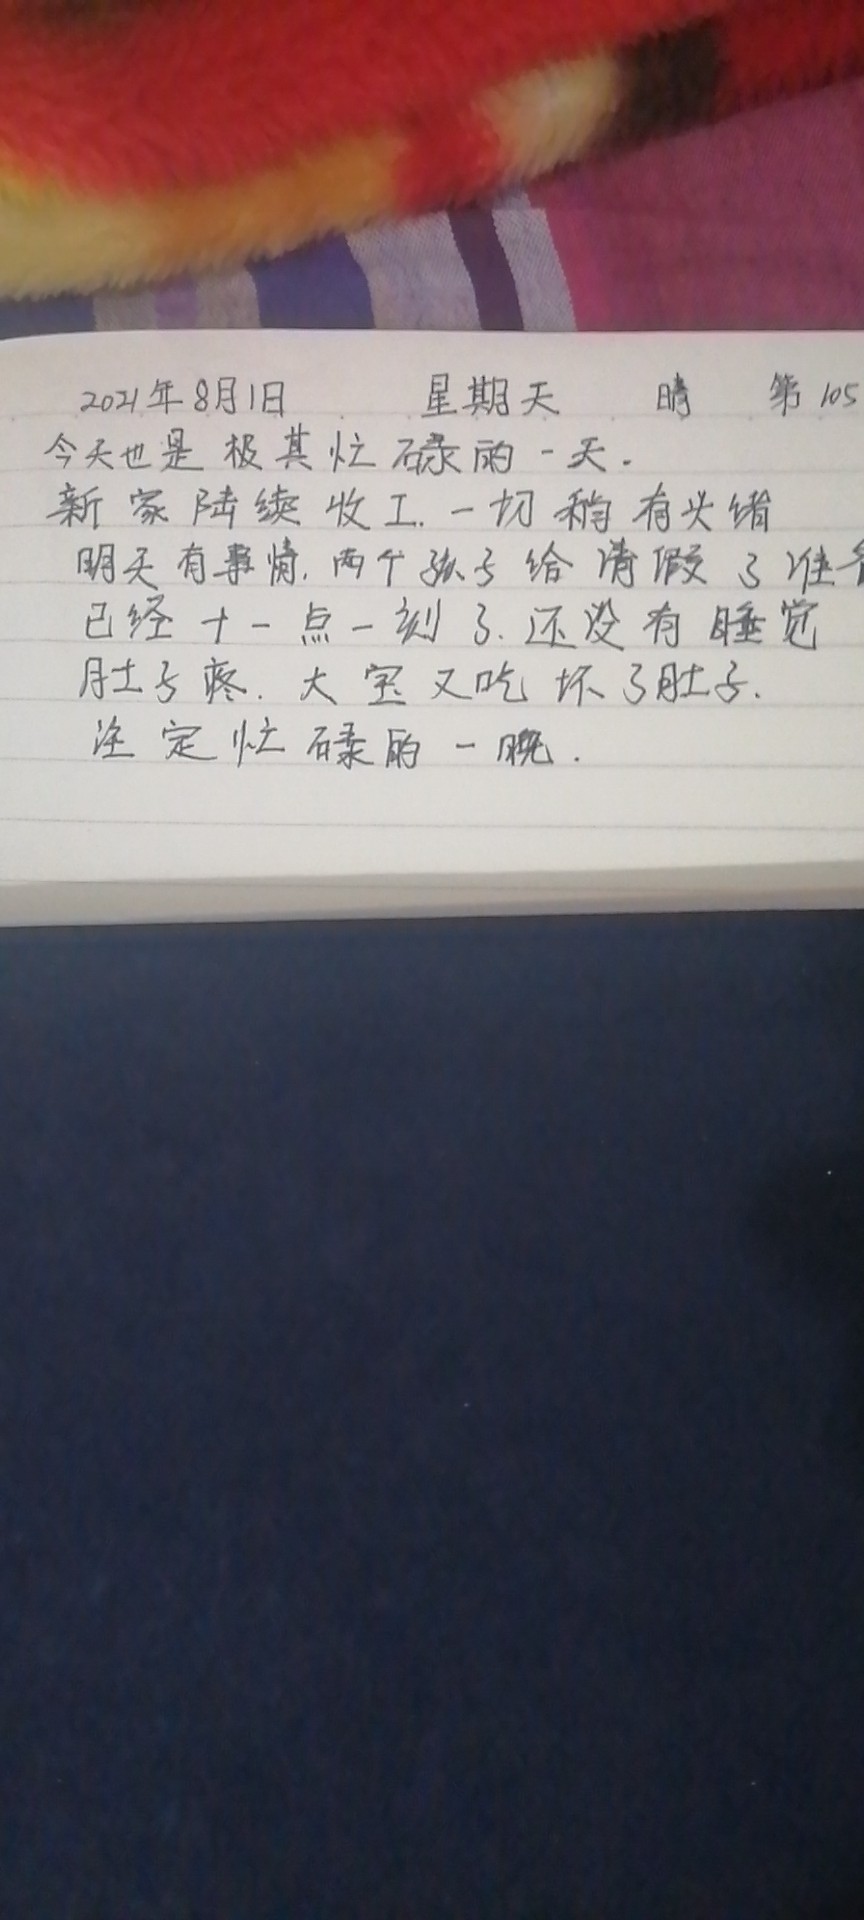 2021年8月1日 星期天 晴 第105
今天也是极其忙碌的一天.
新家陆续收工.一切稍有头绪
明天有事情.两个孩子给请假了准备
已经十一点一刻了.还没有睡觉
肚子疼.大宝又吃坏了肚子.
注定忙碌的一晚.